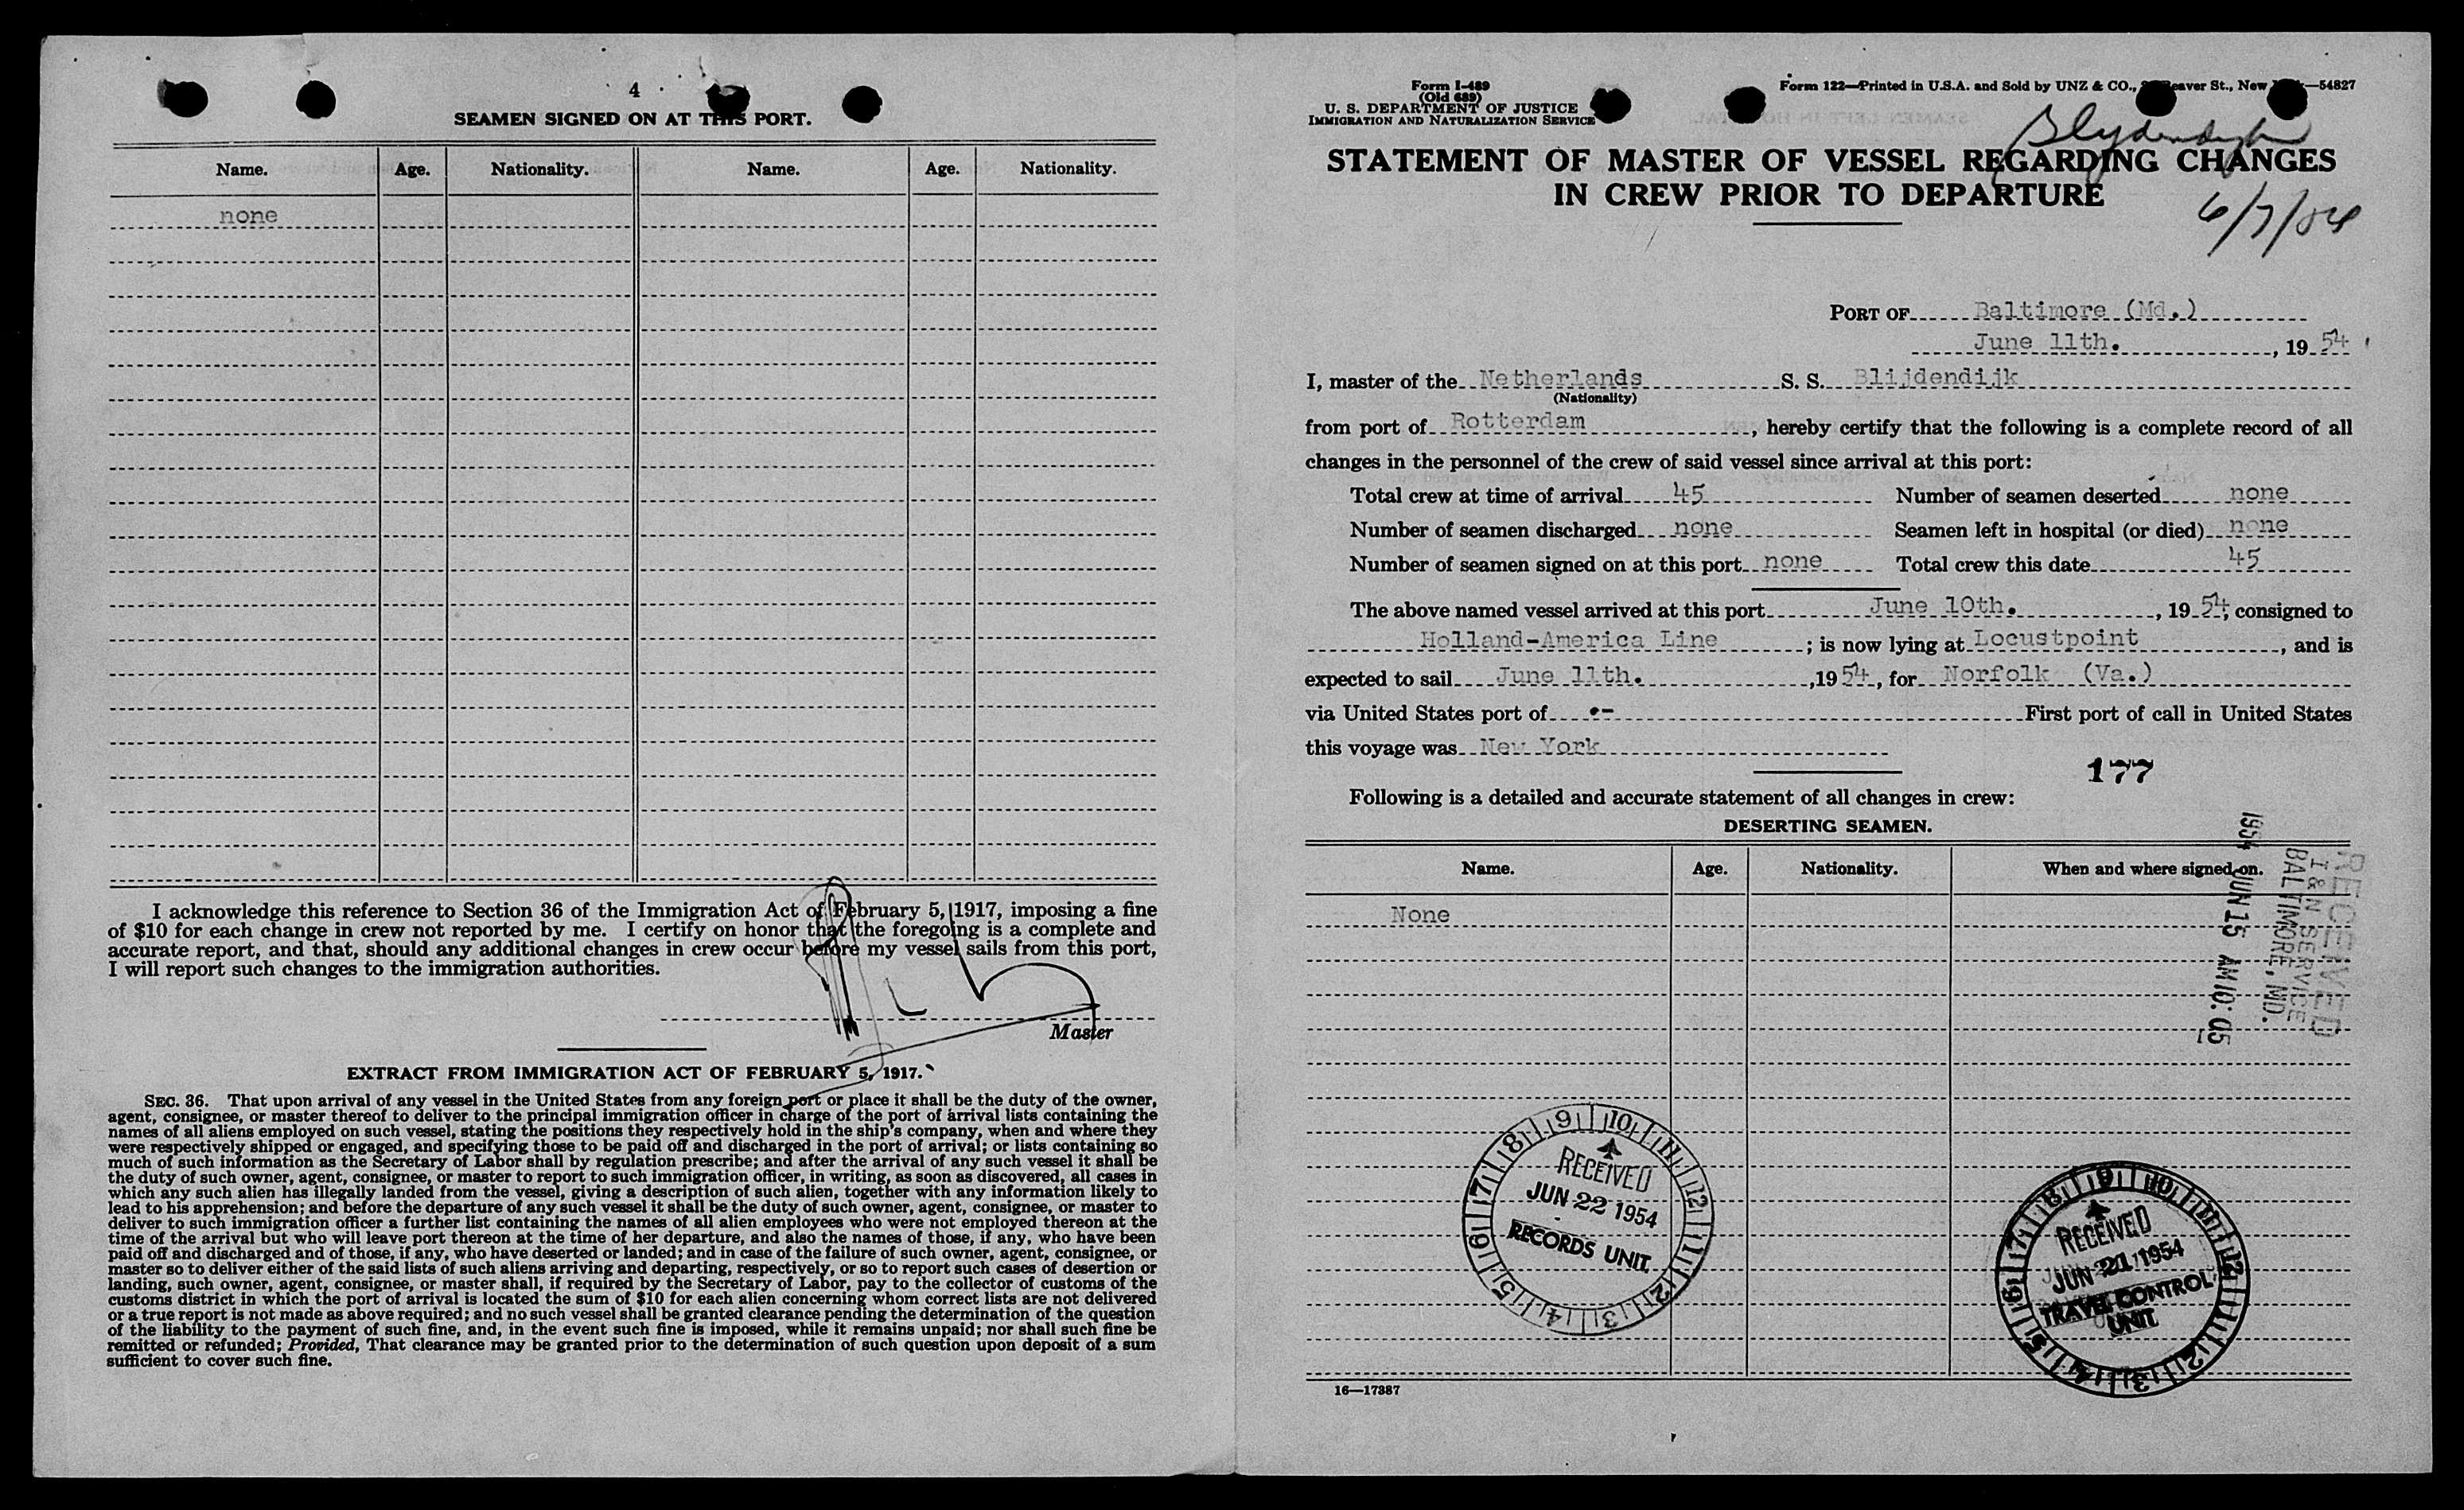 4
SEAMEN SIGNED ON AT THIS PORT.
Name. Age. Nationality. Name. Age. Nationality.
none
I acknowledge this reference to Section 36 of the Immigration Act of February 5, 1917, imposing a fine
of $10 for each change in crew not reported by me. I certify on honor that the foregoing is a complete and
accurate report, and that, should any additional changes in crew occur before my vessel sails from this port,
I will report such changes to the immigration authorities.
Master
EXTRACT FROM IMMIGRATION ACT OF FEBRUARY 5, 1917.
SEC. 36. That upon arrival of any vessel in the United States from any foreign port or place it shall be the duty of the owner,
agent, consignee, or master thereof to deliver to the principal immigration officer in charge of the port of arrival lists containing the
names of all aliens employed on such vessel, stating the positions they respectively hold in the ship's company, when and where they
were respectively shipped or engaged, and specifying those to be paid off and discharged in the port of arrival; or lists containing so
much of such information as the Secretary of Labor shall by regulation prescribe; and after the arrival of any such vessel it shall be
the duty of such owner, agent, consignee, or master to report to such immigration officer, in writing, as soon as discovered, all cases in
which any such alien has illegally landed from the vessel, giving a description of such alien, together with any information likely to
lead to his apprehension; and before the departure of any such vessel it shall be the duty of such owner, agent, consignee, or master to
deliver to such immigration officer a further list containing the names of all alien employees who were not employed thereon at the
time of the arrival but who will leave port thereon at the time of her departure, and also the names of those, if any, who have been
paid off and discharged and of those, if any, who have deserted or landed; and in case of the failure of such owner, agent, consignee, or
master so to deliver either of the said lists of such aliens arriving and departing, respectively, or so to report such cases of desertion or
landing, such owner, agent, consignee, or master shall, if required by the Secretary of Labor, pay to the collector of customs of the
customs district in which the port of arrival is located the sum of $10 for each alien concerning whom correct lists are not delivered
or a true report is not made as above required; and no such vessel shall be granted clearance pending the determination of the question
of the liability to the payment of such fine, and, in the event such fine is imposed, while it remains unpaid; nor shall such fine be
remitted or refunded; Provided, That clearance may be granted prior to the determination of such question upon deposit of a sum
sufficient to cover such fine.
Form I-489
(Old 689)
U. S. DEPARTMENT OF JUSTICE
IMMIGRATION AND NATURALIZATION SERVICE
Form 122—Printed in U.S.A. and Sold by UNZ & CO., Beaver St., New —54827
STATEMENT OF MASTER OF VESSEL REGARDING CHANGES
IN CREW PRIOR TO DEPARTURE
6/7/54
PORT OF Baltimore (Md.)
June 11th. , 19 54
I, master of the Netherlands S. S. Blijdendijk
(Nationality)
from port of Rotterdam , hereby certify that the following is a complete record of all
changes in the personnel of the crew of said vessel since arrival at this port:
Total crew at time of arrival 45 Number of seamen deserted none
Number of seamen discharged none Seamen left in hospital (or died) none
Number of seamen signed on at this port none Total crew this date 45
The above named vessel arrived at this port June 10th. , 19 54, consigned to
Holland-America Line ; is now lying at Locustpoint , and is
expected to sail June 11th. ,19 54, for Norfolk (Va.)
via United States port of .- First port of call in United States
this voyage was New York
177
Following is a detailed and accurate statement of all changes in crew:
DESERTING SEAMEN.
Name. Age. Nationality. When and where signed on.
None
RECEIVED
I & N SERVICE
BALTIMORE, MD.
1954 JUN 15 AM 10:05
9 10 11 12 1 2 3 4 5 6 7 8
RECEIVED
JUN 22 1954
RECORDS UNIT.
9 10 11 12 1 2 3 4 5 6 7 8
RECEIVED
JUN 21 1954
TRAVEL CONTROL
UNIT
16—17387